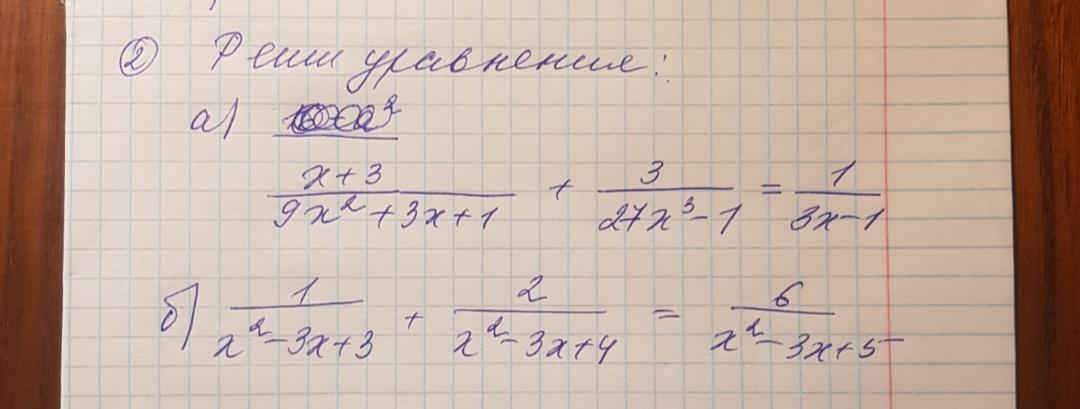 ② Реши уравнение:
а)
x+3 / 9x²+3x+1 + 3 / 27x³-1 = 1 / 3x-1
б) 1 / x²-3x+3 + 2 / x²-3x+4 = 6 / x²-3x+5